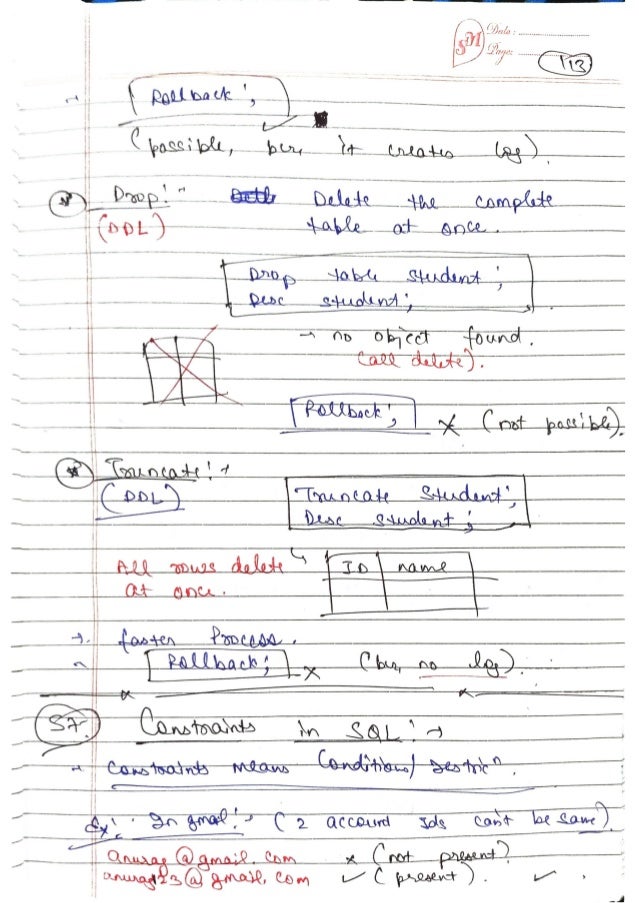 Date:
Page:
SM
113
→ Rollback;
(possible, bcz, it creates log).
* Drop:- Delete the complete
(DDL) table at once.
Drop table student;
Desc student;
→ no object found.
(all delete).
Rollback; × (not possible).
* Truncate:→
(DDL)
Truncate student;
Desc student;
All rows delete
at once.
ID name
→. faster Process.
Rollback; × (bcz, no log).
57. Constraints in SQL:→
→ Constraints means Conditions/ restricⁿ.
Ex:- In gmail:- (2 account Ids can't be same).
anurag@gmail.com × (not present?
anurag123@gmail.com ✓ (present). ✓